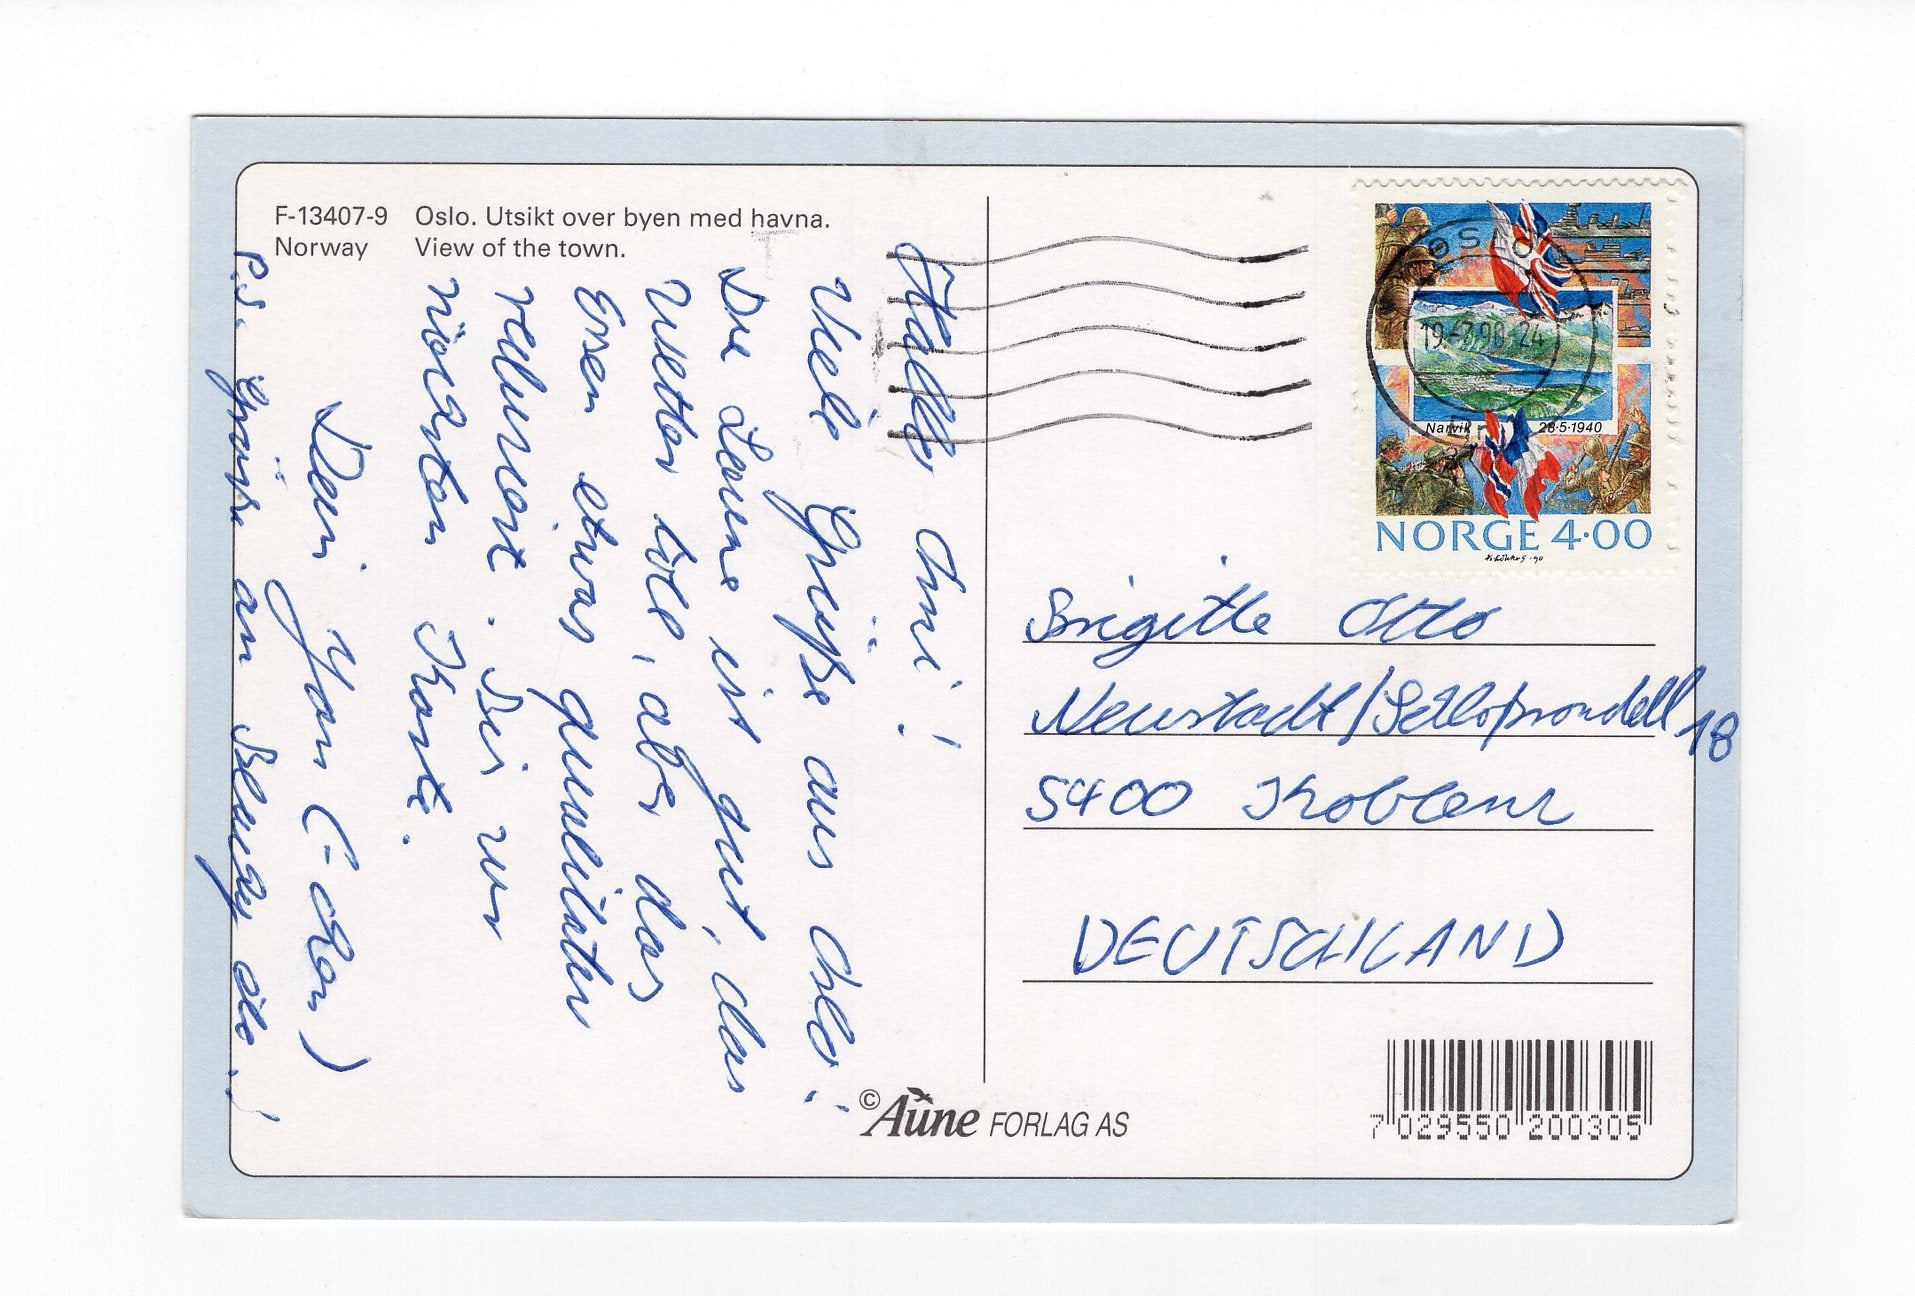 F-13407-9 Oslo. Utsikt over byen med havna.
Norway View of the town.
Hallo Omi!
Viele Grüße aus Oslo!
Die Laune ist gut, das
Wetter toll, aber das
Essen etwas
. Bis zur
nächsten Karte.
Dein Yan (-)
P.S. Grüße an
Brigitte Otto
Neustadt/Schloßrondell 18
5400 Koblenz
DEUTSCHLAND
OSLO
19.-7.90-24
Narvik 28·5·1940
NORGE 4·00
© Aune FORLAG AS
7 029550 200305